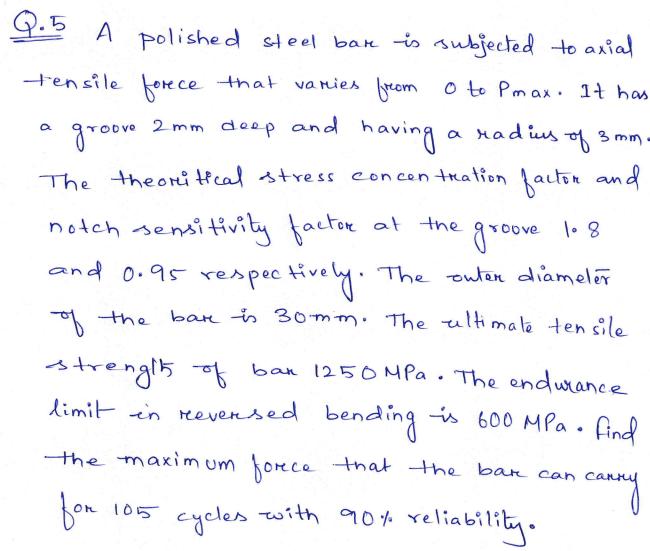 Q.5 A polished steel bar is subjected to axial
tensile force that varies from 0 to Pmax. It has
a groove 2mm deep and having a radius of 3mm.
The theoritical stress concentration factor and
notch sensitivity factor at the groove 1.8
and 0.95 respectively. The outer diameter
of the bar is 30mm. The ultimate tensile
strength of bar 1250 MPa. The endurance
limit in reversed bending is 600 MPa. find
the maximum force that the bar can carry
for 105 cycles with 90% reliability.